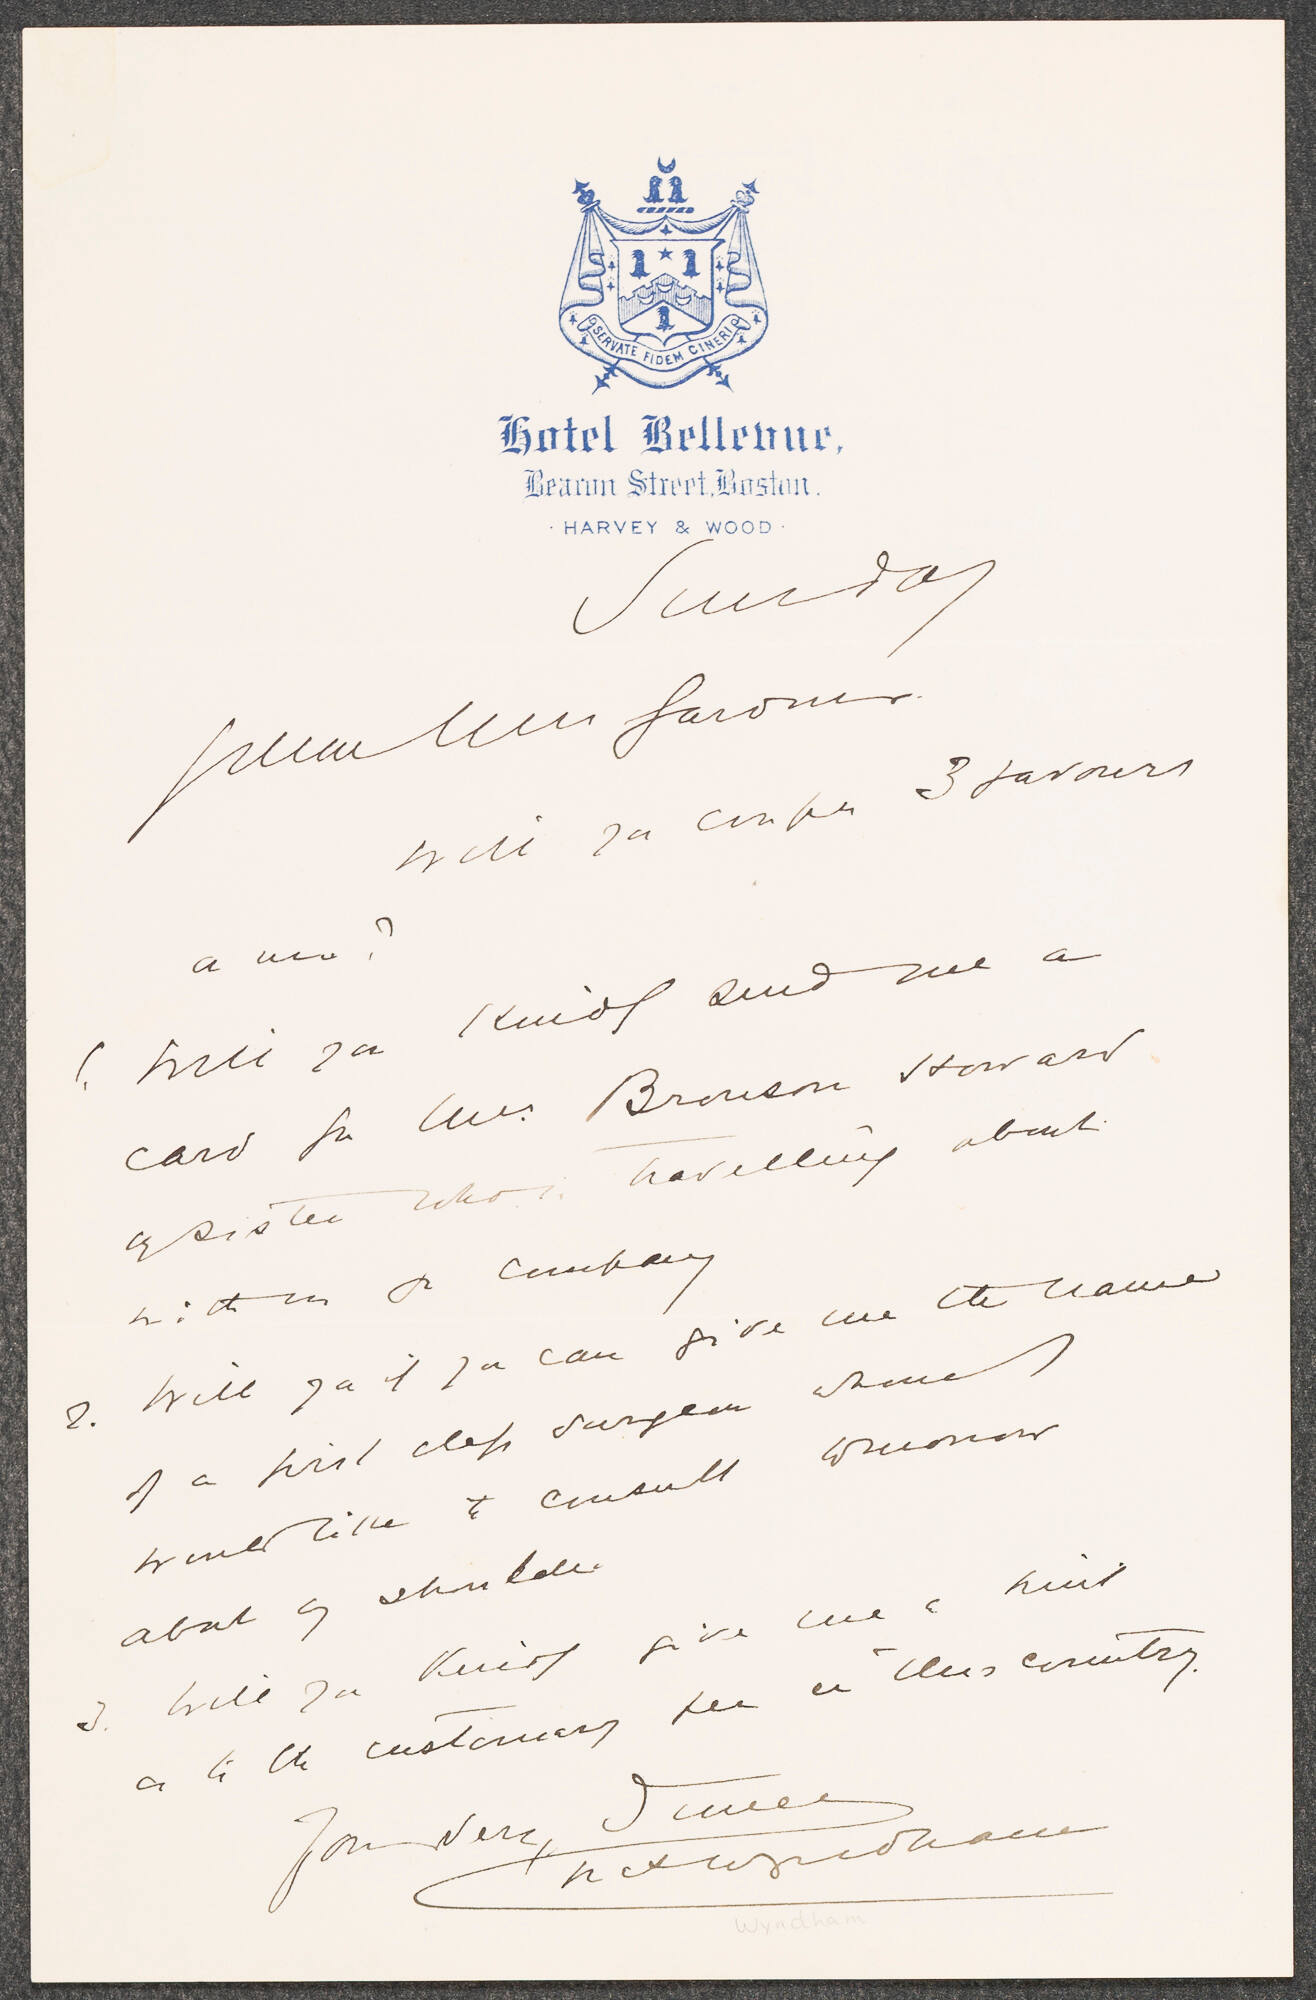 SERVATE FIDEM CINERI
Hotel Bellevue,
Beacon Street, Boston.
· HARVEY & WOOD ·
Sunday
Dear Mrs Gardner.
Will you confer 3 favours
on me?
1. Will you kindly send me a
card for Mrs. Bronson Howard
my sister who is travelling about
with us &
company
2. Will you if you can give me the name
of a first class surgeon whom I
would like to consult tomorrow
about my shoulder.
3. Will you kindly give me a hint
as to the customary fee in this country.
Yours Very Sincerely
Wyndham
Wyndham